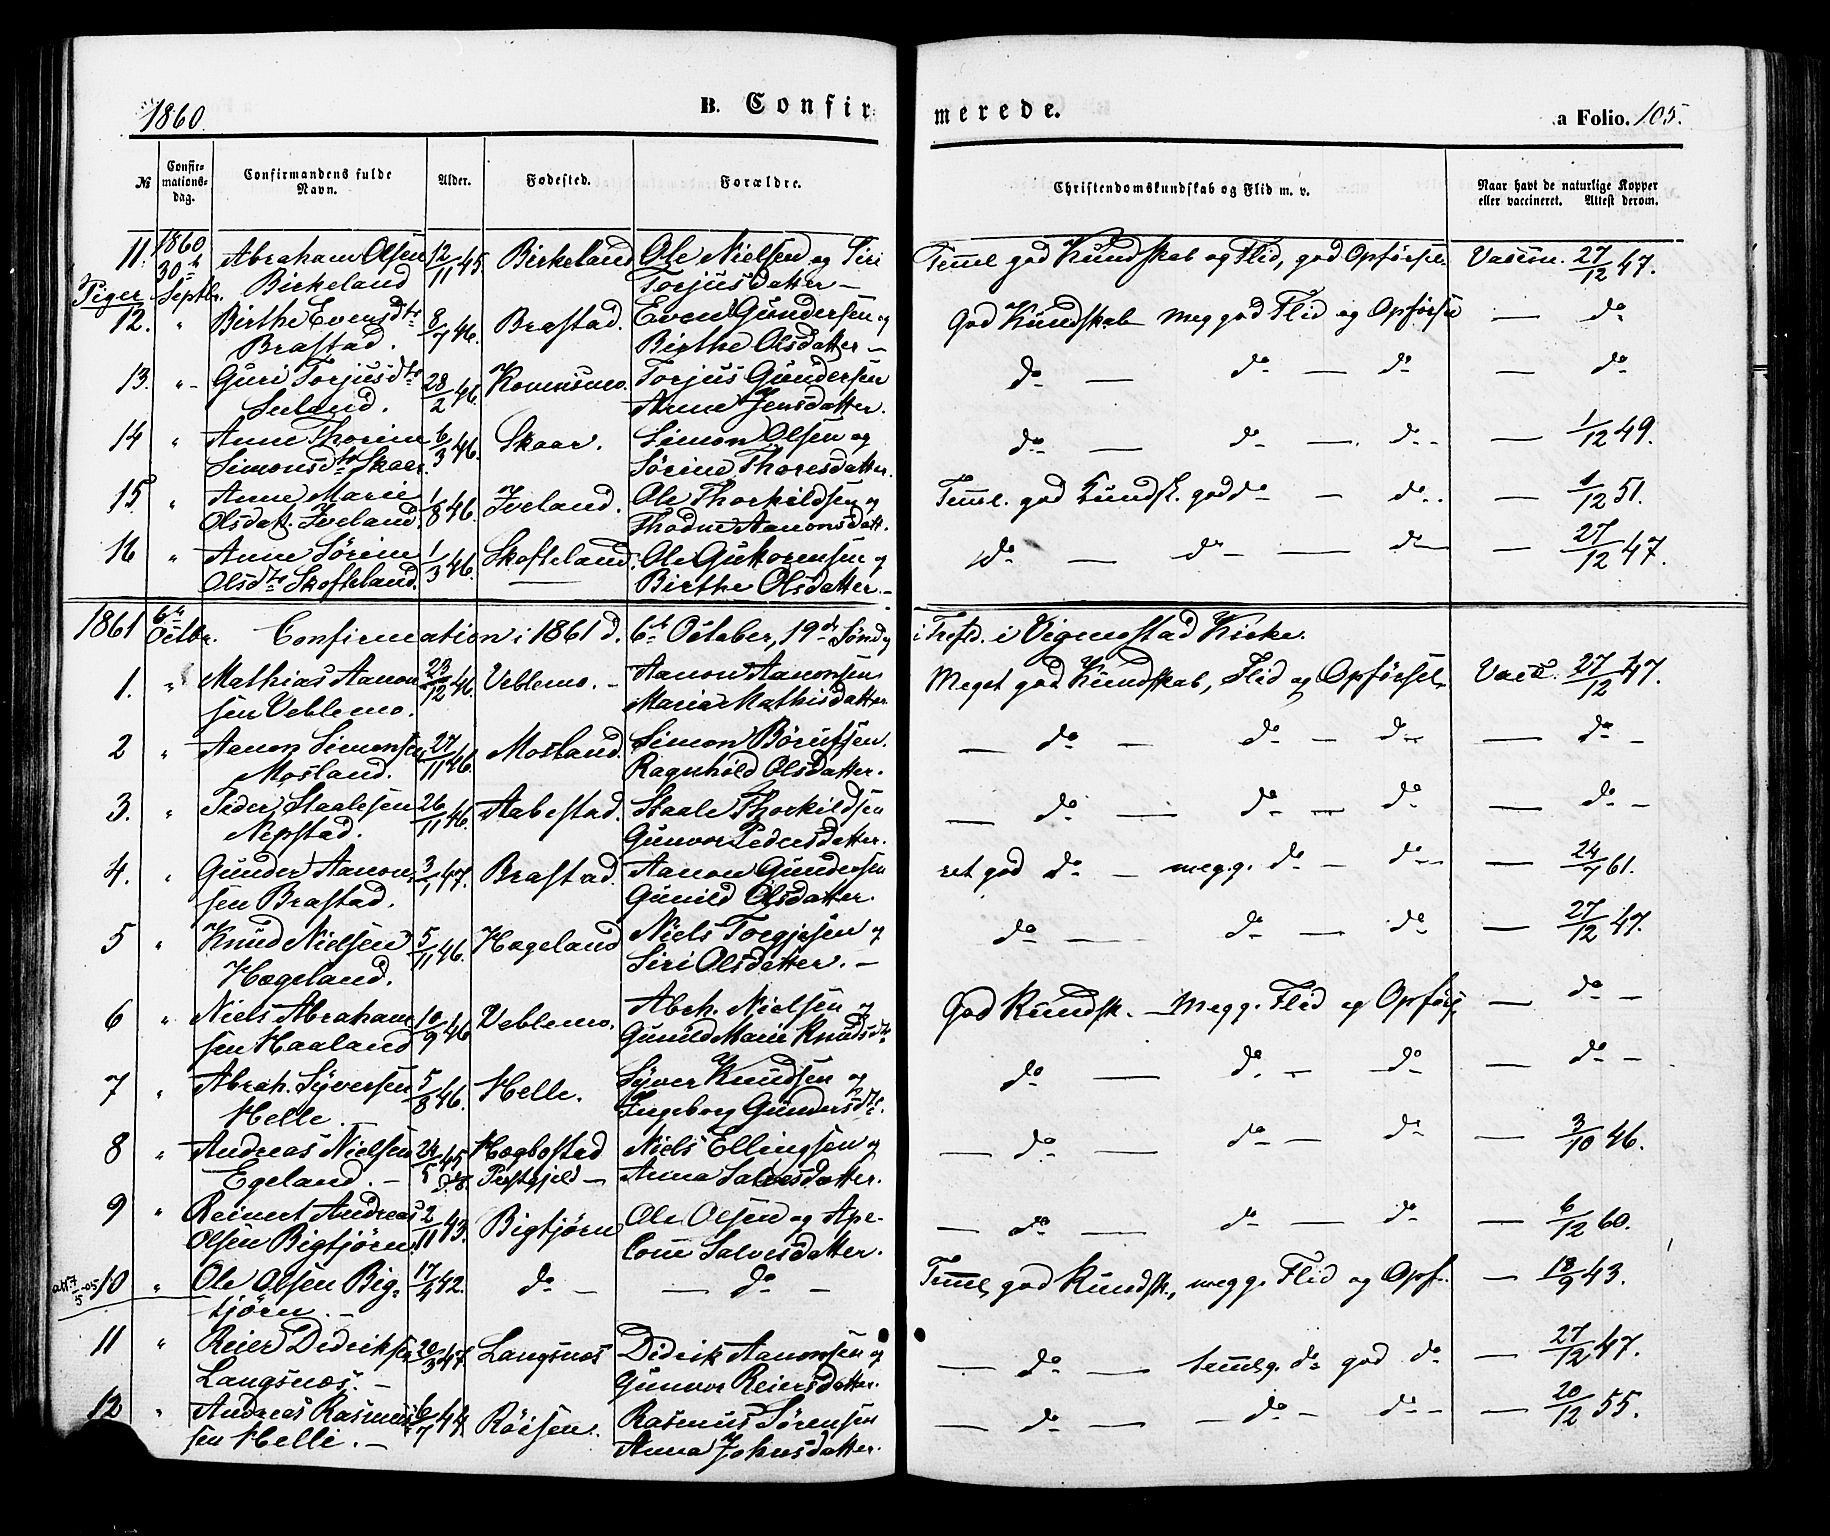 1860.
B. Confirmerede.
a Folio. 105.
№
Confirmations-dag.
Confirmandens fulde Navn.
Alder.
Fødested.
Forældre.
Christendomskundskab og Flid m. v.
Naar havt de naturlige Kopper eller vaccineret. Attest derom.
11. 1860 30te Septbr. Abraham Olsen 12/11 45. Birkeland Ole Nielsen og Siri Teml god Kundskab og Flid, god Opførsel Vaccin. 27/12 47.
Birkeland Torjusdatter —
Piger
12. " Birthe Evensdtr 8/7 46. Brastad. Even Gundersen og God Kundskab meg god Flid og Opførsel — do
Brastad. Birthe Olsdatter —
13. " Guri Torjusdtr 28/2 46. Torjus Gundersen do — do — do — do
Anne Jensdatter.
14 " Anne Thorine 6/3 46. Skaar. Simon Olsen og do — do — do — 1/12 49.
Simonsdtr Skaar. Sørine Thoresdatter.
15 " Anne Marie 1/8 46. Iveland. Ole Thorkildsen og Teml. god Kundsk. god do — do — 6/12 51.
Olsdatt. Iveland Aanonsdatt.
16 " Anne Sørine 1/3 46. Skofteland. Ole Guttormsen og do — do — do — 27/12 47.
Olsdtr Skofteland. Birthe Olsdatter. —
1861 6te Octbr. Confirmation i 1861 d. 6te October, 19de Sønd. i Trefd. i Vigmostad Kirke.
1. " Mathias Aanon 23/12 46. Veblemo. — Aanon Aanonsen Meget god Kundskab, Flid og Opførsel. Vacc. 27/12 47.
sen Veblemo. Maria Mathisdatter
2 " Aanon Simonsen 27/11 46. Mosland. Simon Børufsen. — do — do — do — do —
Mosland. Ragnhild Olsdatter.
3. " Peder Staalesen 26/11 46. Aabestad. Staale Thorkildsen — do — do — do — do —
Nepstad. Gunvor Pedersdatter.
4. " Gunder Aanon 3/1 47. Brastad. Aanon Gundersen ret god do — meg.g. do — do — 24/7 61.
sen Brastad. Gunild Olsdatter.
5 " Knud Nielsen 5/11 46. Hægeland Niels Torgjesen og do — do — do — 27/12 47.
Hægeland. Siri Olsdatter. —
6 " Niels Abraham 10/9 46 Veblemo. Abrh. Nielsen og God Kundsk. — Meg g. Flid og Opførs. — do —
sen Haaland Gunild Marie Knudsdtr
7 " Abrah. Syversen 5/8 46. Helle. Syver Knudsen og do — do. — do — do —
Helle. Ingeborg Gundersdtr.
8 " Andreas Nielsen 24/5 45 Hægbostad Niels Ellingsen og — do — do — do — 3/10 46.
Egeland. — Præstegjeld — Anna Salvesdatter.
9 " Reinert Andreas 2/11 43. Bigtjørn Ole Olsen og Ape- — do — do — do — 6/12 60.
Olsen Bigtjørn. lone Salvesdatter.
10 " Ole Olsen Big- 17/4 42. do — — do — Teml god Kundsk., meg g. Flid og Opf. — 18/9 43.
tjørn. —
11 " Reier Didriksen 20/3 47. Langsnæs Didrik Aanonsen og — do — temlg. do god do — 27/12 47.
Langsnæs. — Gunvor Reiersdatter.
12 " Andreas Rasmus 6/7 44 Røisen. Rasmus Sørensen — do — — do — do — 20/12 55.
sen Helle. — Anna Johnsdatter.